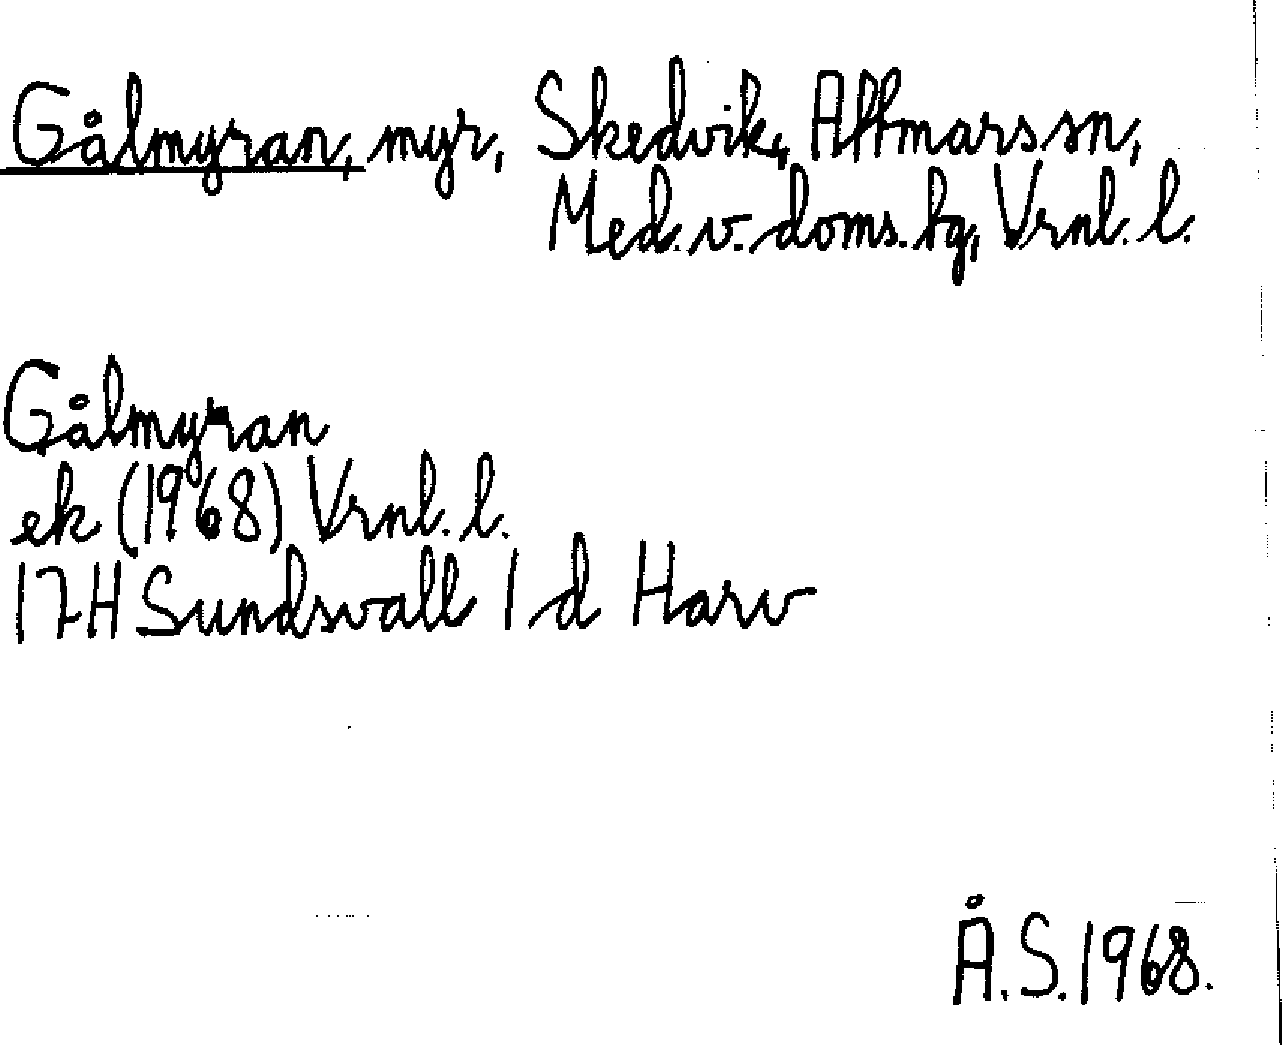 Gålmyran, myr, Skedvik, Attmars sn,
Med. v. doms. fg, Vrnl. l.
Gålmyran
ek (1968) Vrnl. l.
17H Sundsvall 1 d Harv
Å.S. 1968.